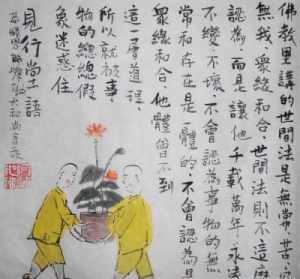 佛教里講的世間法是無常、苦、
無我、衆緣和合。世間法則不這麽
認為,而是讓他千載萬年、永遠
不變、不壞。不會認為事物的無
常和存在是一體的,不會認為是
衆緣和合。他體會不到
這一層道理,
所以就被事
物的總總假
象迷惑住
見行堂語